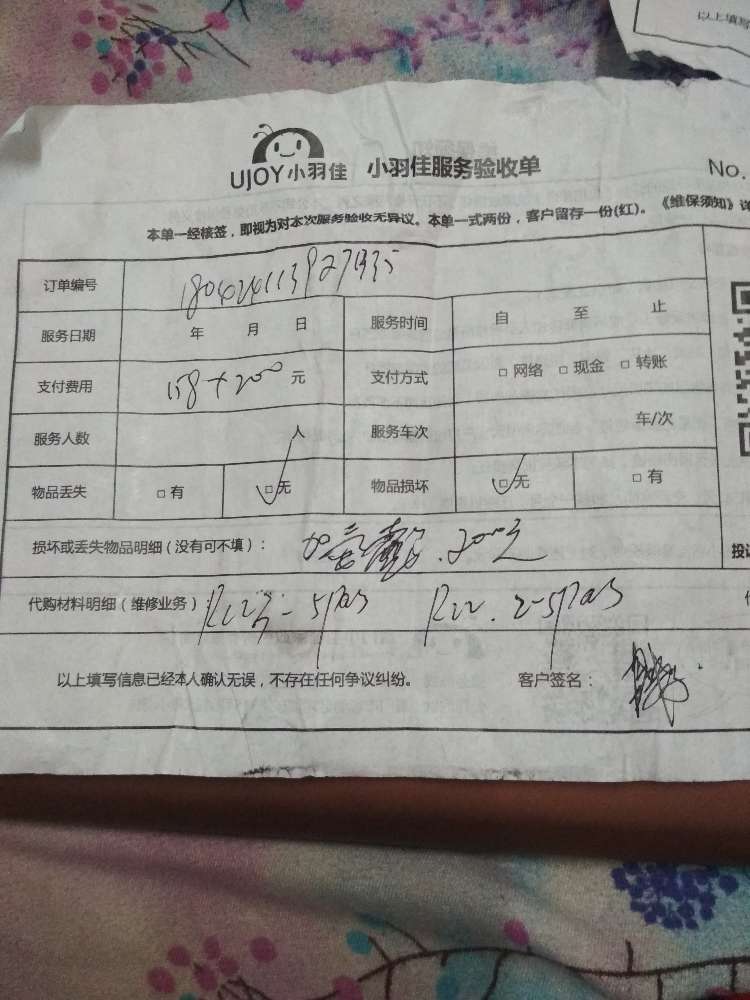 以上填写
UJOY小羽佳 小羽佳服务验收单 No.
本单一经核签，即视为对本次服务验收无异议。本单一式两份，客户留存一份(红)。《维保须知》详
订单编号
服务日期 年 月 日 服务时间 自 至 止
支付费用 158+200 元 支付方式 □ 网络 □ 现金 □ 转账
服务人数 人 服务车次 车/次
物品丢失 □ 有 □ 无 物品损坏 □ 无 □ 有
损坏或丢失物品明细（没有可不填）： 200元
投诉
代购材料明细（维修业务） R22
以上填写信息已经本人确认无误，不存在任何争议纠纷。 客户签名：